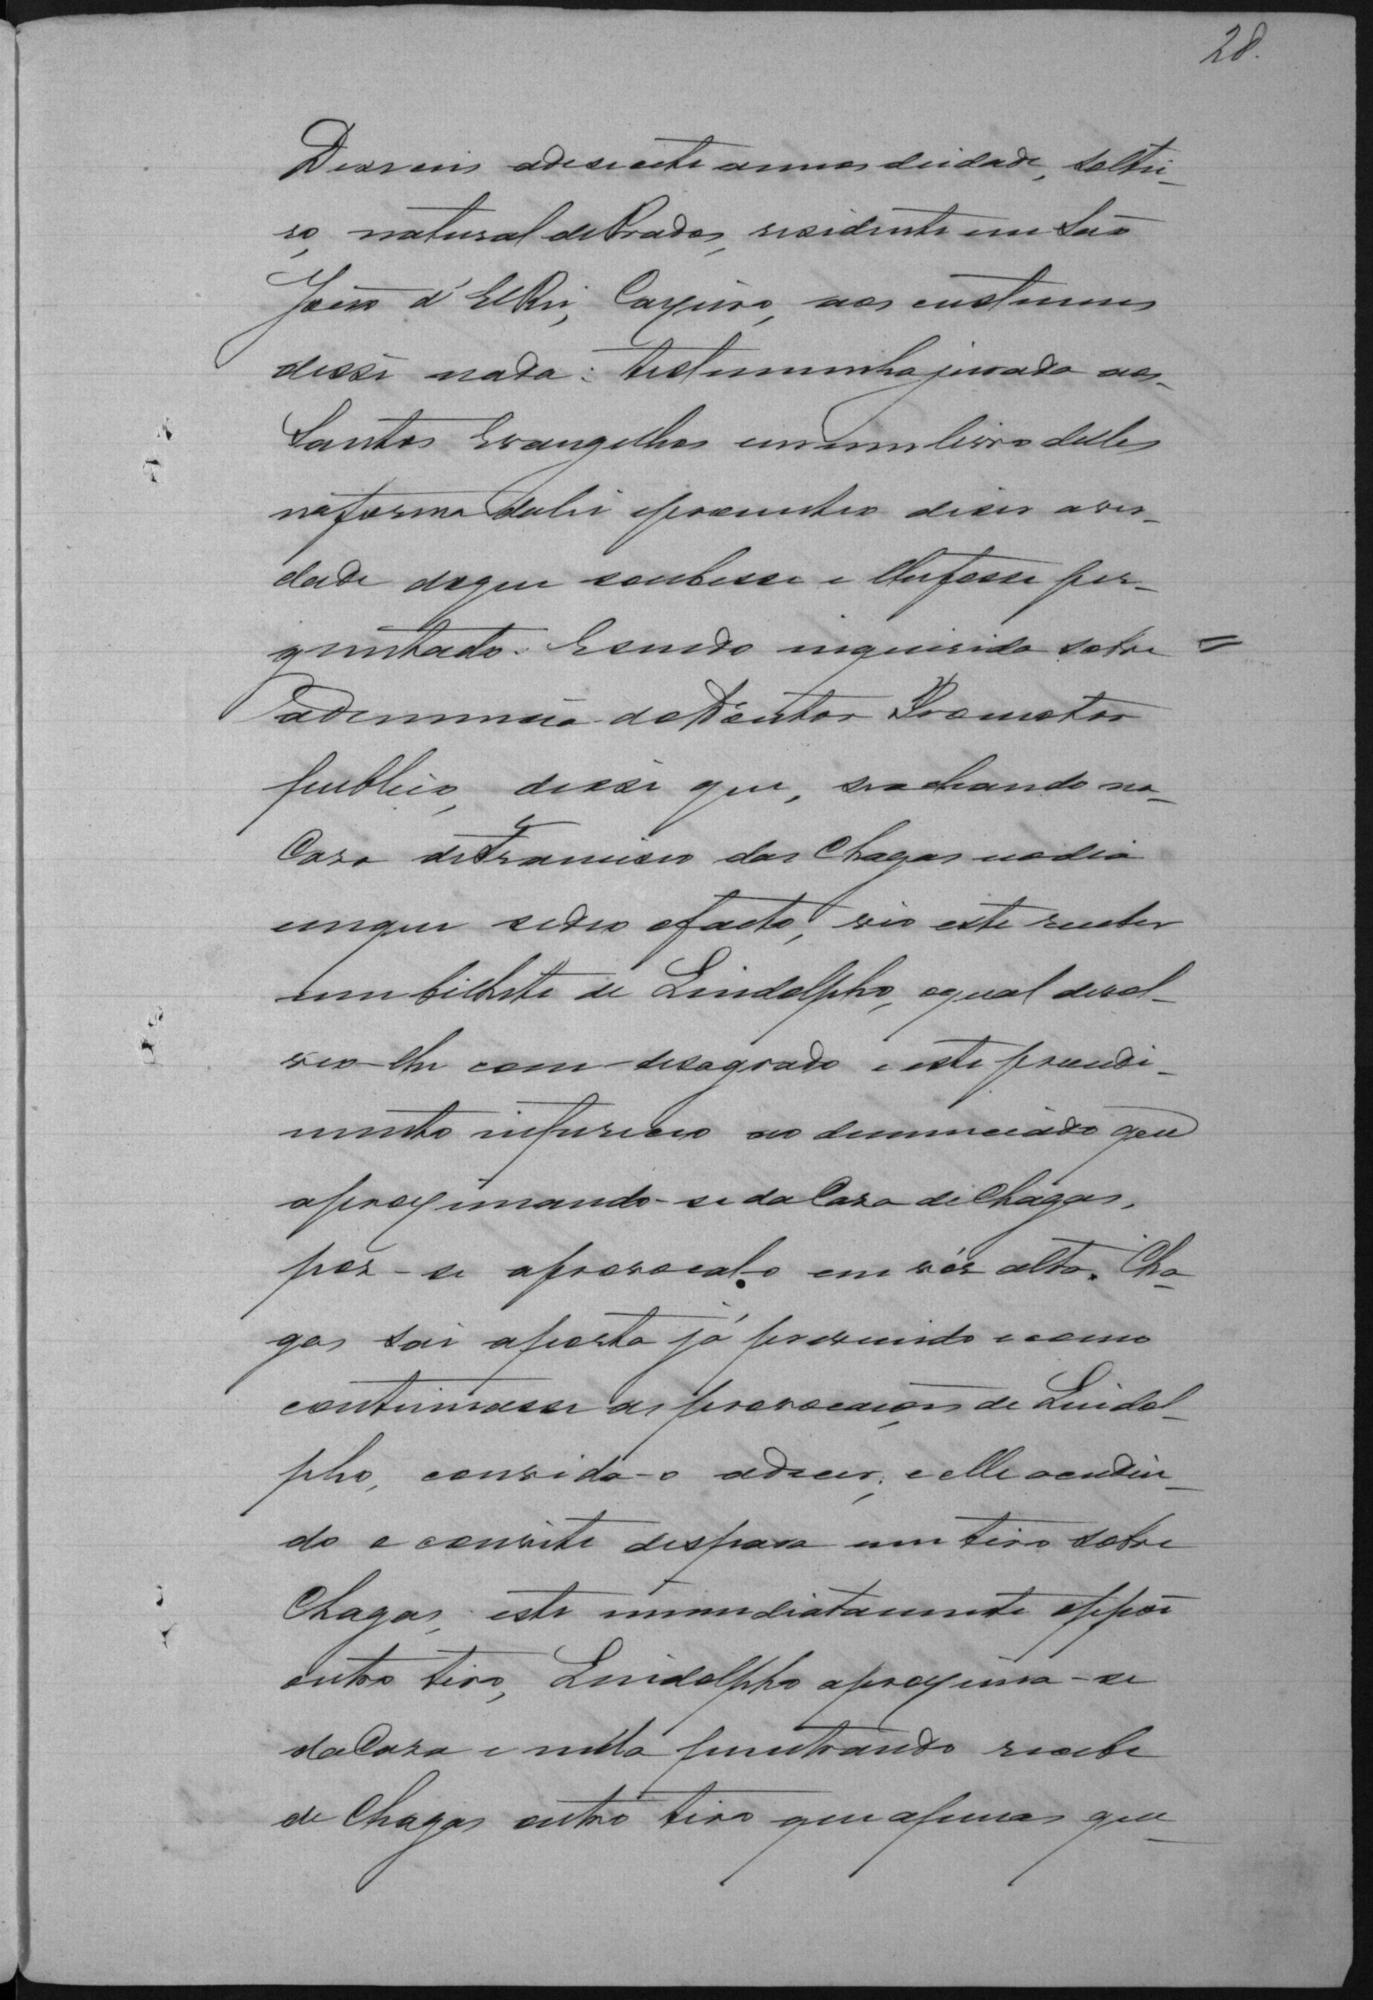 28.
Desseis a desesete annos de idade, soltei-
ro, natural de Prados, residente em São
João d'El Rei, Caxeiro, aos custumes
disse nada: testemunha jurada aos
Santos Evangelhos em um livro delles
na forma da lei e prometteo diser a ver-
dade do que soubesse e lhe fosse per-
guntado. E sendo inquirido sobre =
a denuncia do Doutor Promotor
publico, disse que, se achando na
Casa de Francisco das Chagas no dia
em que se deo o facto, vio este receber
um bilhete de Lindolpho, o qual devol-
veo-lhe com desagrado e este procedi-
mento infureceo ao denunciado que
aproximando-se da Casa de Chagas,
pos-se a provocal-o em vós alta. Cha-
gas sai a porta já prevenido e como
continuasse as provocações de Lindol-
pho, convida-o a descer, e elle acudin-
do o convite dispara um tiro sobre
Chagas, este immediatamente oppõe
outro tiro, Lindolpho aproxima-se
da Casa e nella penetrando recebe
de Chagas outro tiro que apenas que-